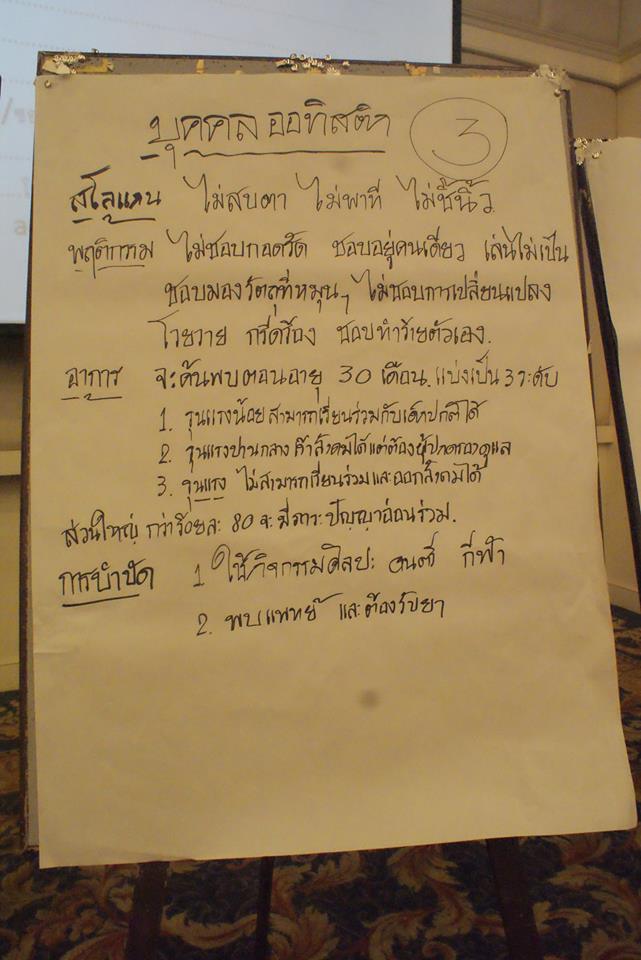 บุคคลออทิสติก
3
สโลแกน ไม่สบตา ไม่พาที ไม่ชี้นิ้ว
พฤติกรรม ไม่ชอบกอดรัด ชอบอยู่คนเดียว เล่นไม่เป็น
ชอบมองวัตถุที่หมุนๆ ไม่ชอบการเปลี่ยนแปลง
โวยวาย กรีดร้อง ชอบทำร้ายตัวเอง.
อาการ จะค้นพบตอนอายุ 30 เดือน. แบ่งเป็น 3 ระดับ
1. รุนแรงน้อยสามารถเรียนร่วมกับเด็กปกติได้
2. รุนแรงปานกลาง เข้าสังคมได้แต่ต้องมีผู้ปกครองดูแล
3. รุนแรง ไม่สามารถเรียนร่วมและออกสังคมได้
ส่วนใหญ่ กว่าร้อยละ 80 จะมีภาวะปัญญาอ่อนร่วม.
การบำบัด 1. ใช้กิจกรรมศิลปะ ดนตรี กีฬา
2. พบแพทย์ และต้องรับยา